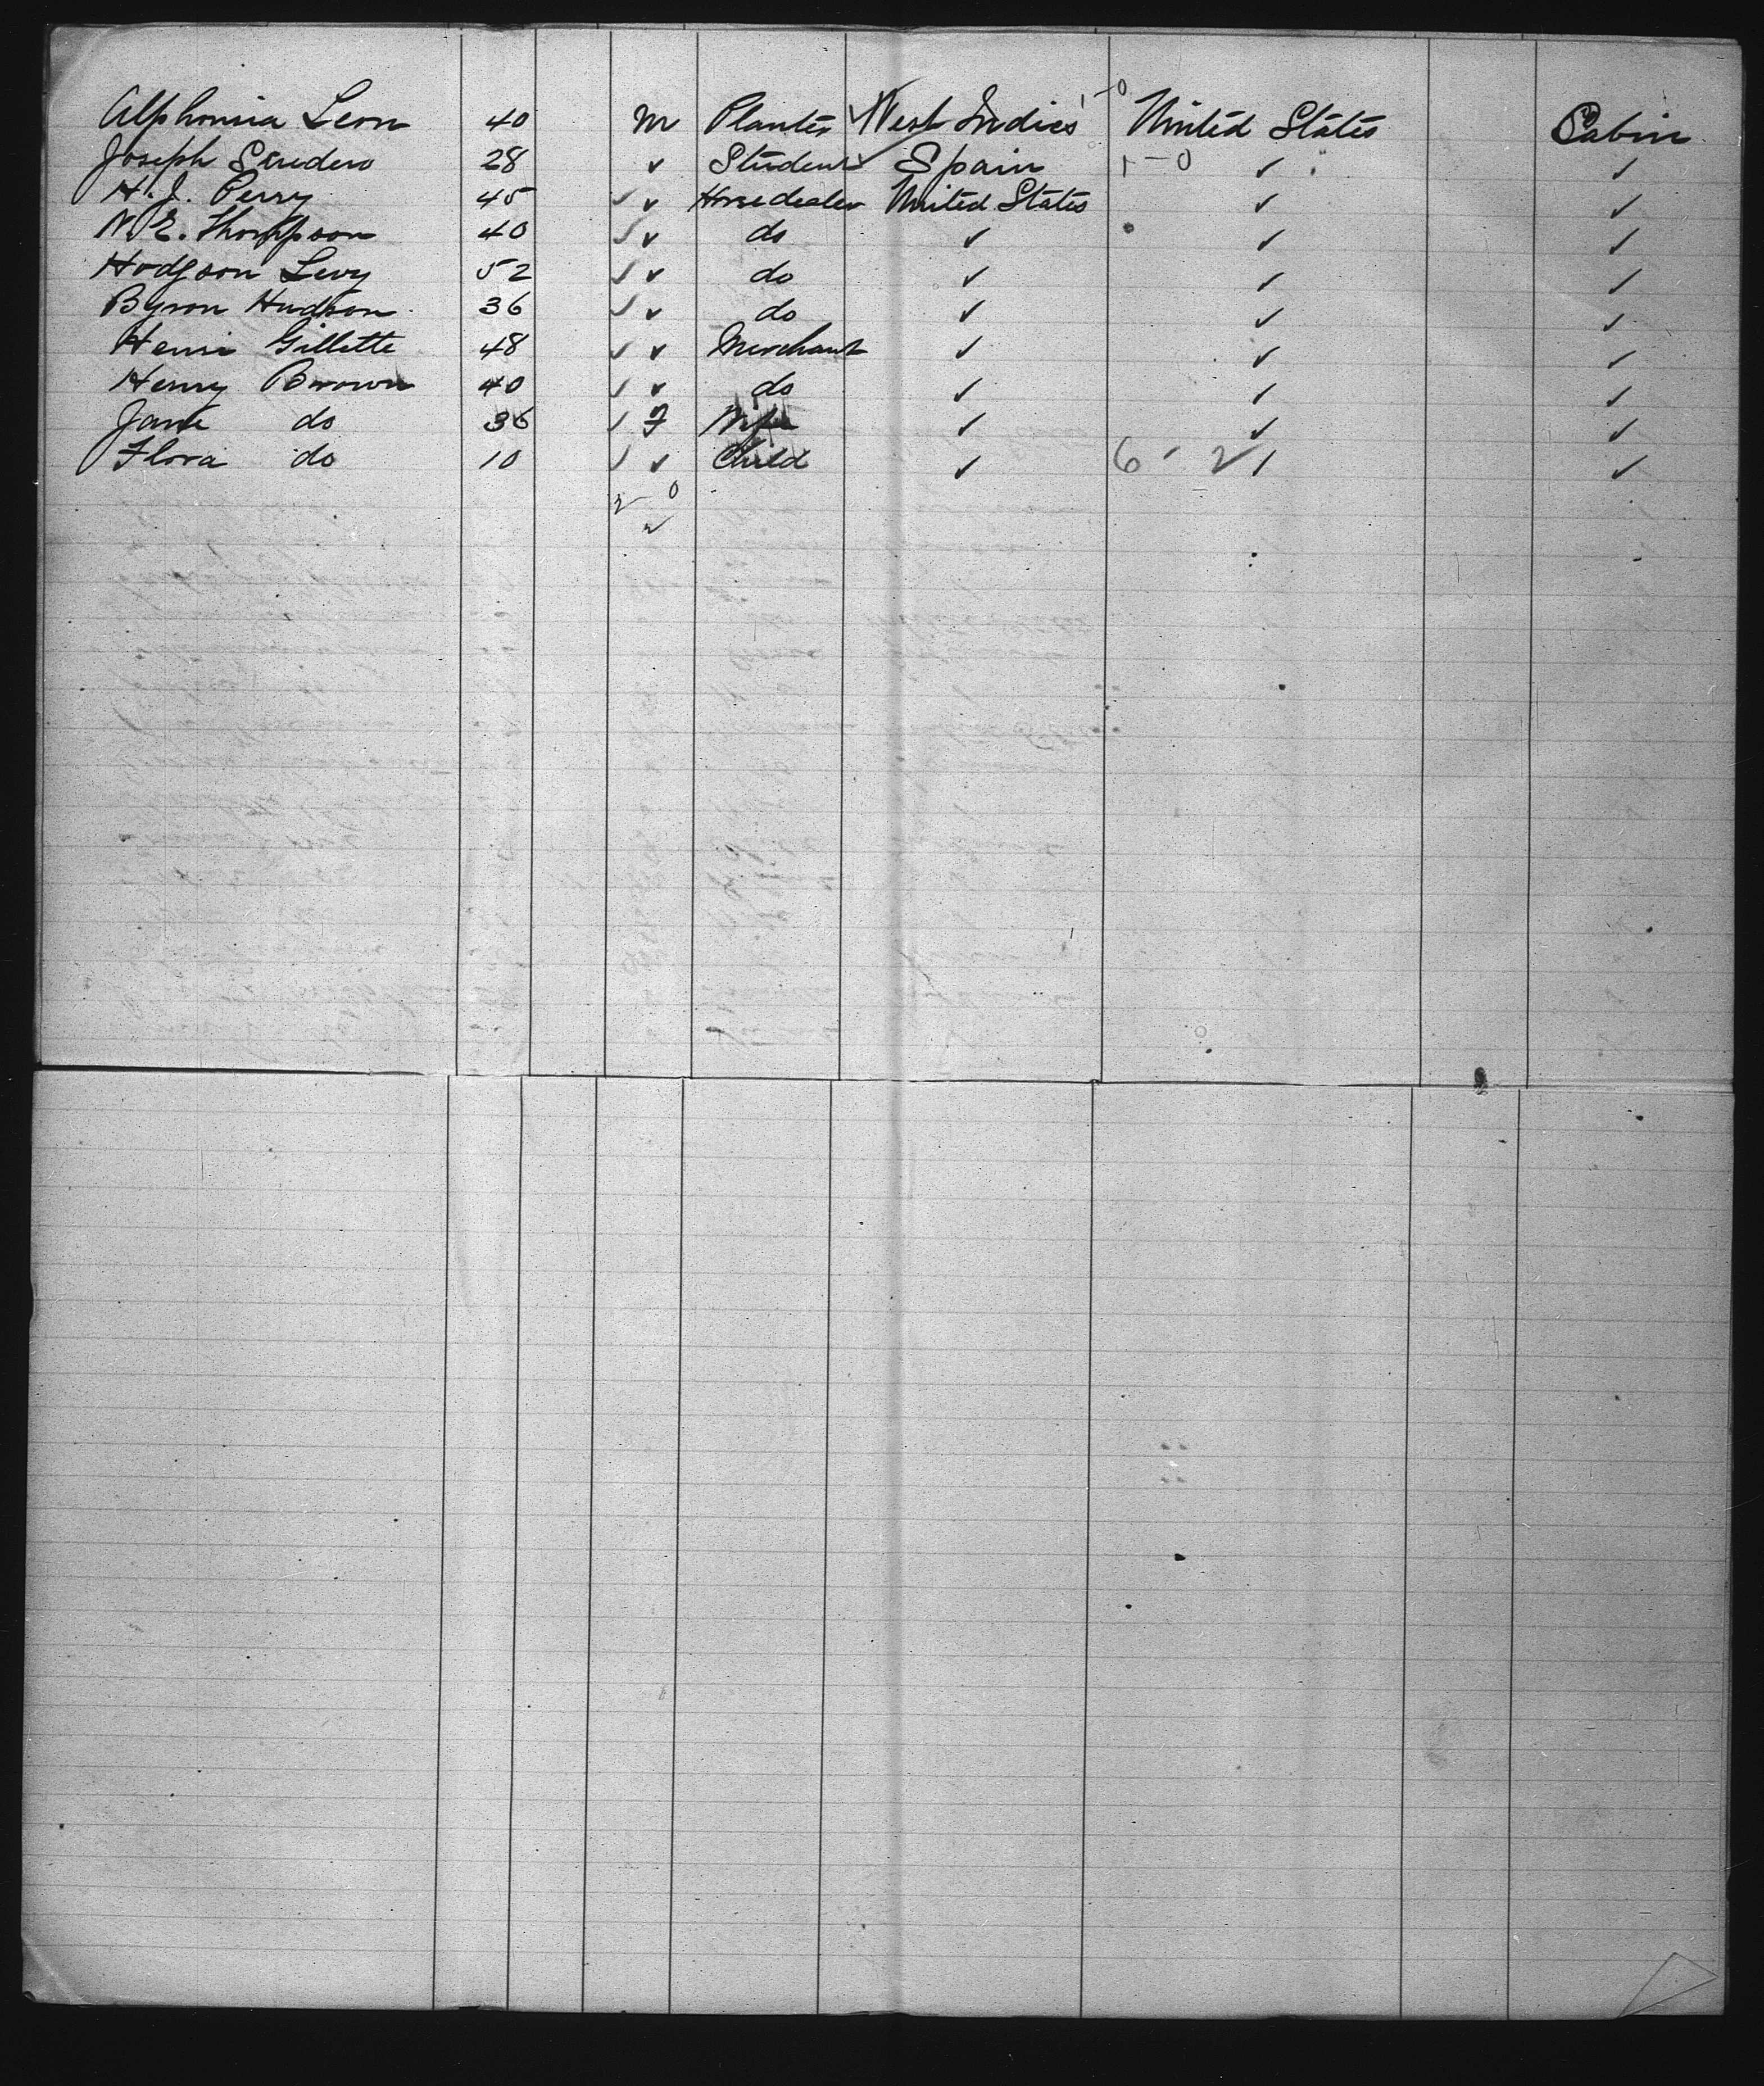 Alphonsia Leon 40 M Planter West Indies 1-0 United States Cabin
Joseph 28 ✓ Student Spain 1-0 ✓ ✓
H. J. Perry 45 ✓ ✓ Horsedealer United States ✓ ✓
N. E. Thompson 40 ✓ ✓ do ✓ ✓ ✓
Hodgson Levy 52 ✓ ✓ do ✓ ✓ ✓
Byron Hudson 36 ✓ ✓ do ✓ ✓ ✓
Henri Gillette 48 ✓ ✓ Merchant ✓ ✓ ✓
Henry Brown 40 ✓ ✓ do ✓ ✓ ✓
Jane do 36 ✓ F Wife ✓ ✓ ✓
Flora do 10 ✓ ✓ Child ✓ 6-2 ✓ ✓
2-0